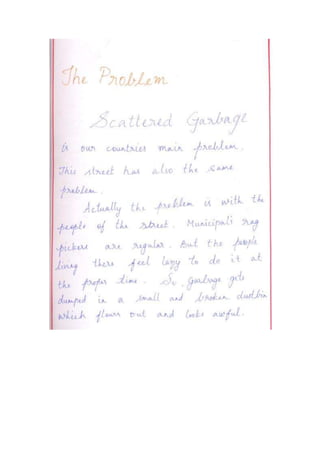 The Problem
Scattered Garbage
is our countries main problem.
This street has also the same
problem.
Actually the problem is with the
people of the street. Municipali rag
pickers are regular. But the people
living there feel lazy to do it at
the proper time. So, garbage gets
dumped in a small and broken dustbin
which flows out and looks awful.